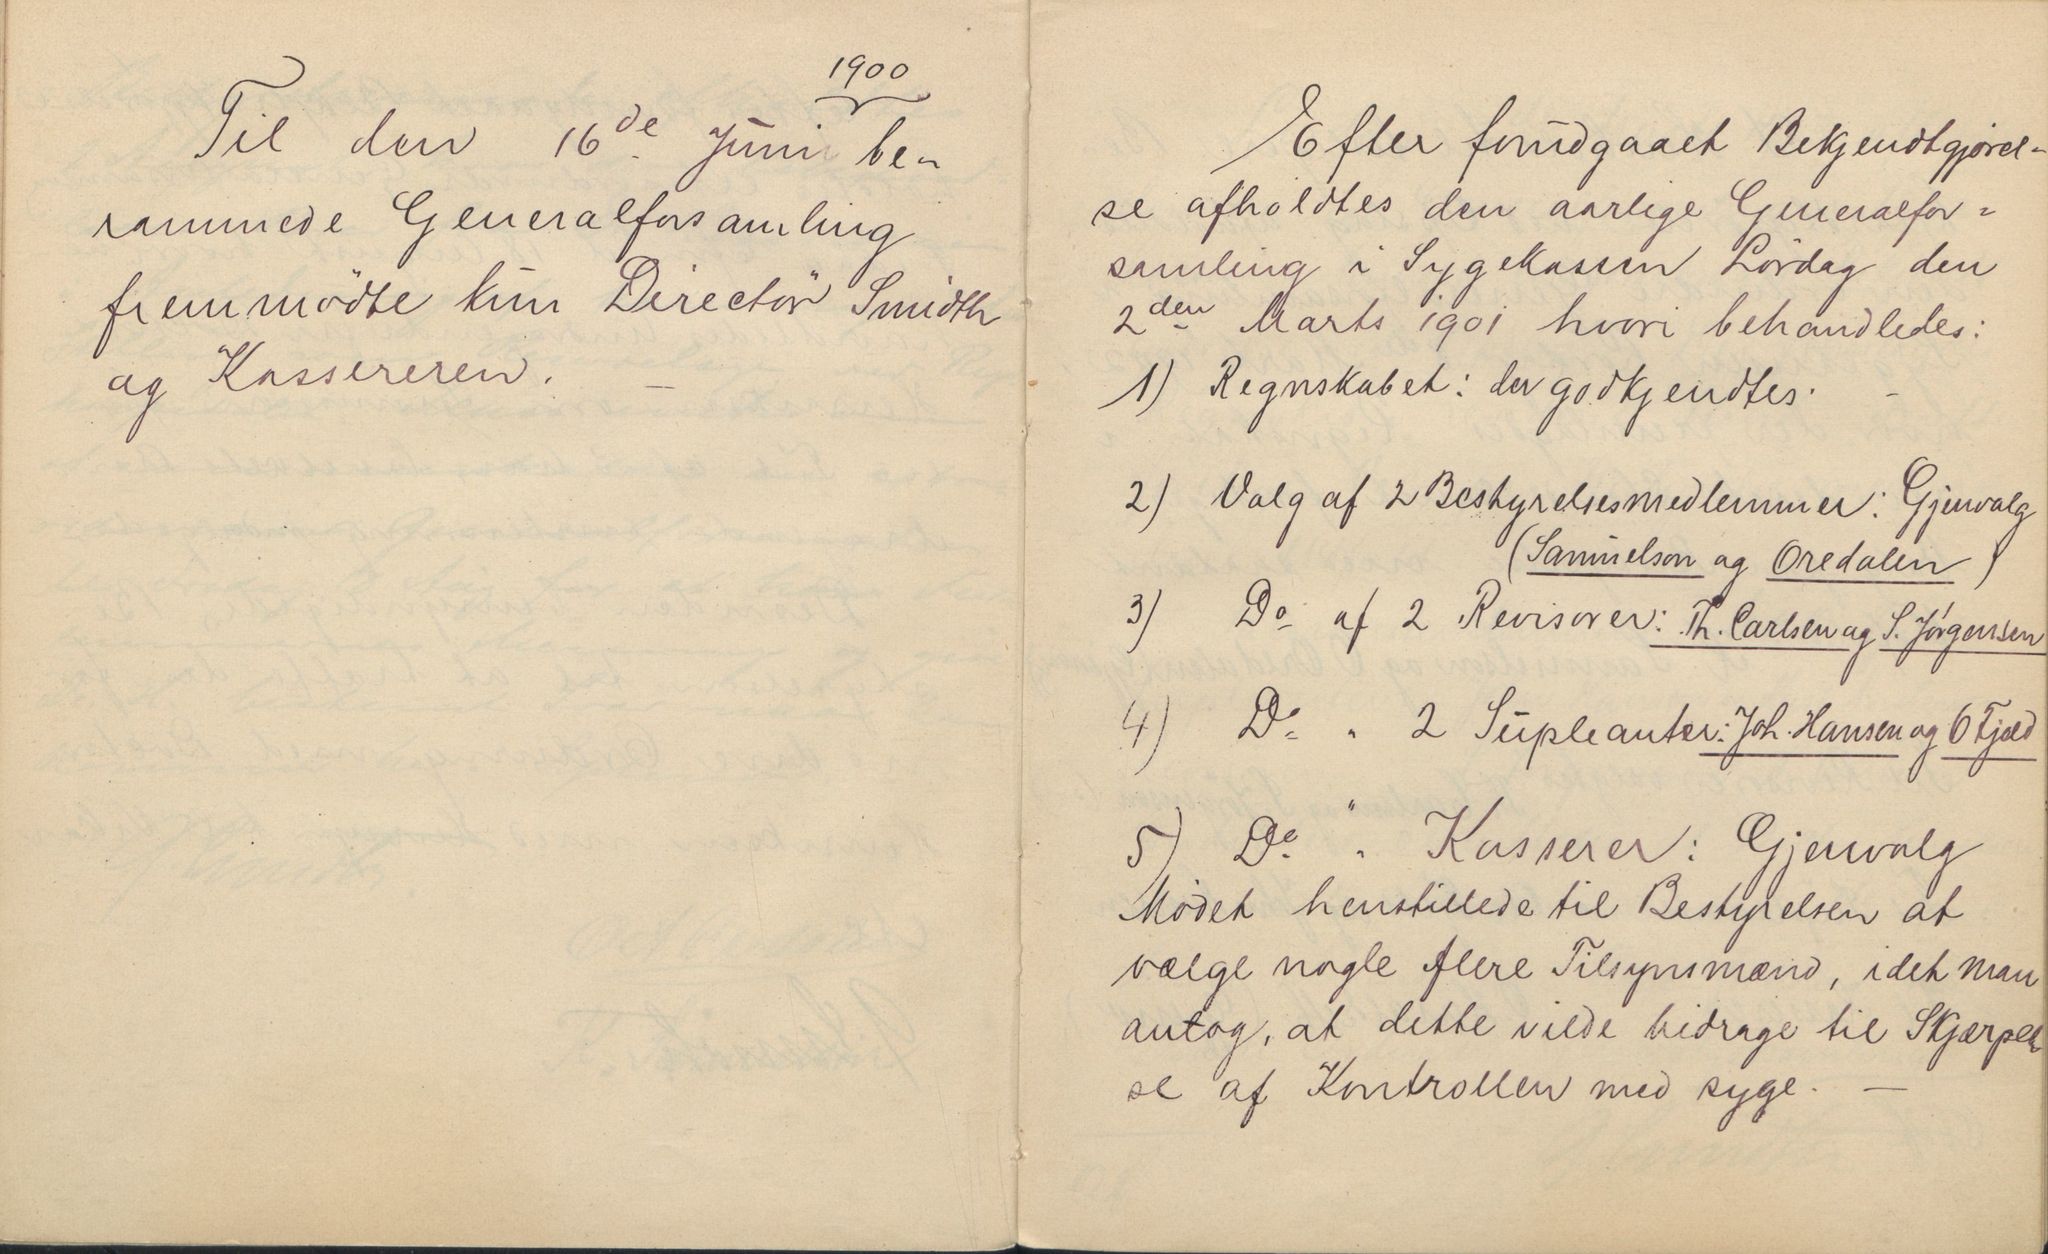 1900
Til den 16de Juni be-
rammede Generalforsamling
fremmödte kun Directör Smidth
og Kassereren. —
Efter forudgaaet Bekjendtgjörel-
se afholdtes den aarlige Generalfor-
samling i Sygekassen Lördag den
2den Marts 1901 hvori behandledes:
1) Regnskabet: der godkjendtes. —
2) Valg af 2 Bestyrelsesmedlemmer: Gjenvalg
(Samuelson og Oredalen)
3) Do af 2 Revisorer: Th. Carlsen og S. Jörgensen
4) Do " 2 Supleanter: Joh. Hansen og O Fjeld
5) Do " Kasserer: Gjenvalg
Mödet henstillede til Bestyrelsen at
vælge nogle flere Tilsynsmænd, idet man
antog, at dette vilde bidrage til Skjærpel-
se af Kontrollen med syge. —